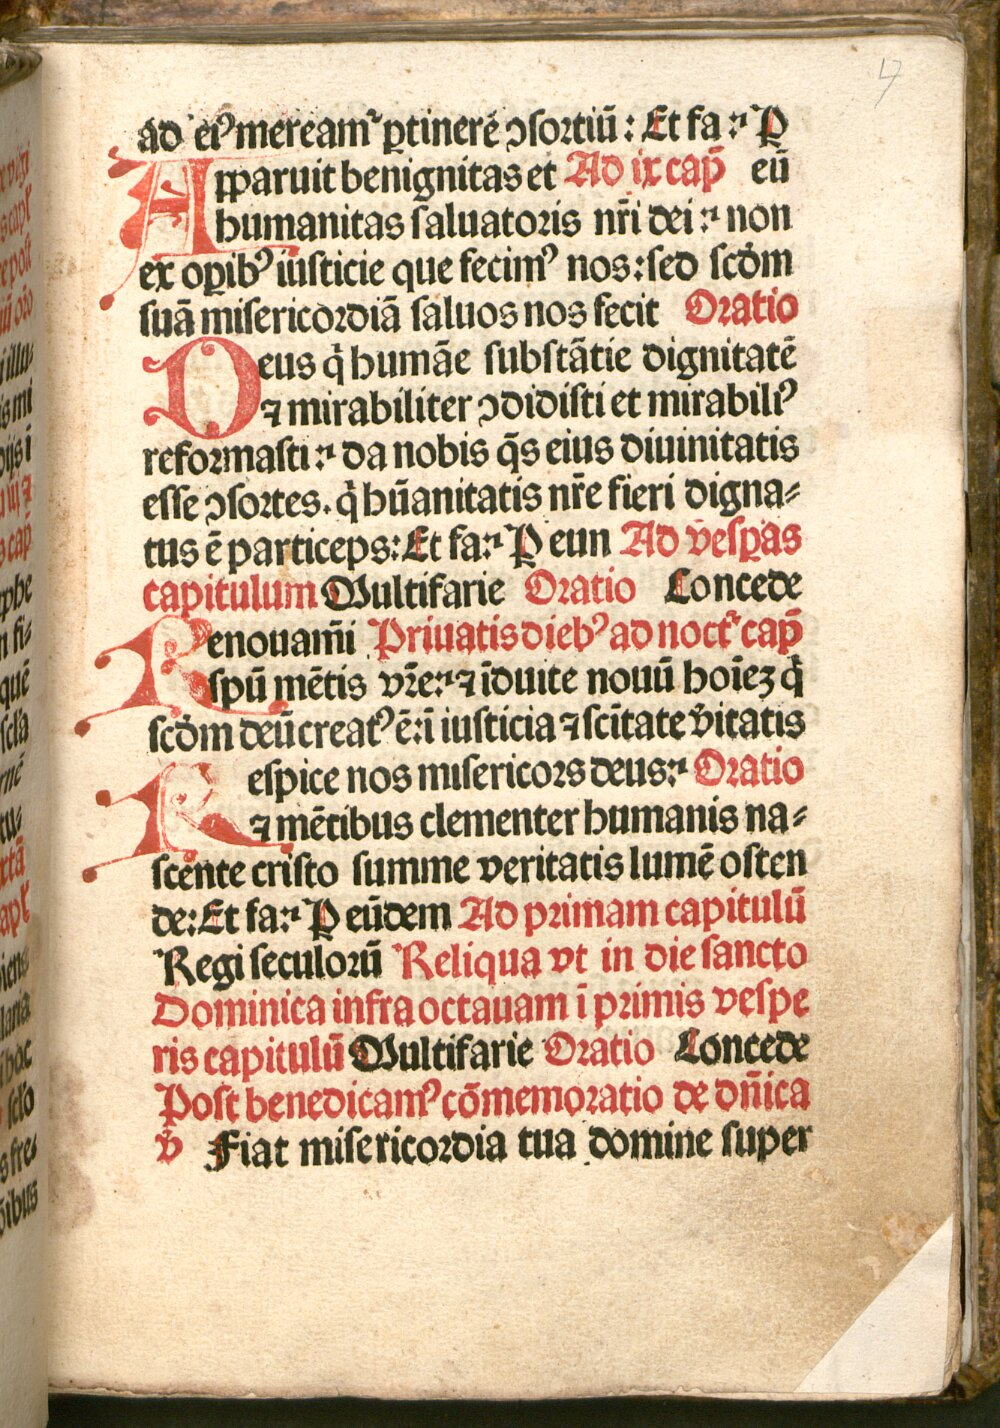 17
ad eiꝰ meream᷑ ꝑtinerē ↄsortiū : Et fa ⁊ P
Apparuit benignitas et Ad ix cap̄ eū
humanitas saluatoris nr̄i dei ⁊ non
ex oꝑibꝰ iusticie que fecimꝰ nos : sed scd̄m
suā misericordiā saluos nos fecit Oratio
Deus q̇ humāe substātie dignitatē
⁊ mirabiliter ↄdidisti et mirabiliꝰ
reformasti ⁊ da nobis q̄s eius diuinitatis
esse ↄsortes. q̇ hūanitatis nr̄e fieri digna⸗
tus ē particeps : Et fa ⁊ P eun Ad vesꝑas
capitulum Multifarie Oratio Concede
Renouam̄i Priuatis diebꝰ ad noct᷑ cap̄
spū mētis vr̄e ⁊ ⁊ īduite nouū hoīeꝫ q̇
scd̄m deū creatꝰ ē : ī iusticia ⁊ scītate v̄itatis
Respice nos misericors deus ⁊ Oratio
⁊ mētibus clementer humanis na⸗
scente cristo summe veritatis lumē osten
de : Et fa ⁊ P eūdem Ad primam capitulū
Regi seculorū Reliqua vt in die sancto
Dominica infra octauam ī primis vespe
ris capitulū Multifarie Oratio Concede
Post benedicamꝰ cōmemoratio de dn̄ica
v̄ Fiat misericordia tua domine super